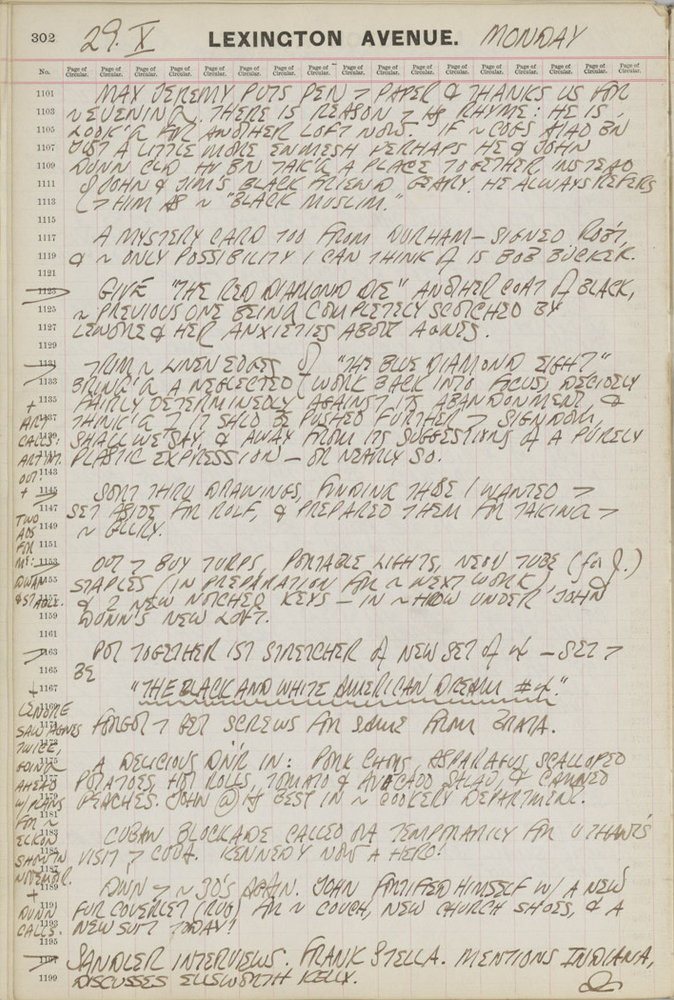 302 29. X LEXINGTON AVENUE. MONDAY
No. Page of Circular. Page of Circular. Page of Circular. Page of Circular. Page of Circular. Page of Circular. Page of Circular. Page of Circular. Page of Circular. Page of Circular. Page of Circular. Page of Circular. Page of Circular. Page of Circular. Page of Circular. Page of Circular. Page of Circular.
1101 MAX JEREMY PUTS PEN > PAPER & THANKS US FOR
1103 ~ EVENING. THERE IS REASON > HS RHYME: HE IS
1105 LOOK'G FOR ANOTHER LOFT NOW. IF ~ COGS HAD BN
1107 JUST A LITTLE MORE ENMESH PERHAPS HE & JOHN
1109 DUNN CLD HV BN TAK'G A PLACE TOGETHER INSTEAD
1111 OF JOHN & JIM'S BLACK FRIEND GEARY. HE ALWAYS REFERS
1113 (> HIM AS ~ "BLACK MUSLIM."
1115
1117 A MYSTERY CARD TOO FROM DURHAM — SIGNED ROBT,
1119 & ~ ONLY POSSIBILITY I CAN THINK OF IS BOB BUCKER.
1121
1123 GIVE "THE RED DIAMOND DIE" ANOTHER COAT OF BLACK,
1125 ~ PREVIOUS ONE BEING COMPLETELY SCOTCHED BY
1127 LENORE & HER ANXIETIES ABOUT AGNES.
1129
1131 TRIM ~ LINEN EDGES OF "THE BLUE DIAMOND EIGHT"
1133 BRING'G A NEGLECTED WORK BACK INTO FOCUS, DECIDELY
1135 FAIRLY DETERMINEDLY AGAINST ITS ABANDONMENT, &
1137 THINK'G > IT SHLD BE PUSHED FURTHER > SIGNDOM,
1139 SHALL WE SAY, & AWAY FROM ITS SUGGESTIONS OF A PURELY
1141 PLASTIC EXPRESSION — OR NEARLY SO.
1143
+ ART CALLS: OUT.
1145 SORT THRU DRAWINGS, FINDING THOSE I WANTED >
1147 SET ASIDE FOR ROLF, & PREPARED THEM FOR TAKING >
1149 ~ GLLRY.
1151
+ TWO ADS FOR ME: DWAN & STABLE.
1153 OUT > BUY TURPS, PORTABLE LIGHTS, NEON TUBE (for J.)
1155 STAPLES (IN PREPARATION FOR ~ NEXT WORK)
1157 & 2 NEW NOTCHED KEYS — IN ~ HDW UNDER JOHN
1159 DUNN'S NEW LOFT.
1161
1163 PUT TOGETHER 1ST STRETCHER OF NEW SET OF 4 — SET >
1165 BE
1167 "THE BLACK AND WHITE AMERICAN DREAM #4."
FORGOT > GET SCREWS FOR SAME FROM BRATA.
+ LENORE SAW AGNES TWICE, GOING AHEAD W/ PLANS FOR ~ ELKON SHOW IN NOVEMBER.
A DELICIOUS DN'R IN: PORK CHOPS, ASPARAGUS, SCALLOPED
1177 POTATOES, HOT ROLLS, TOMATO & AVOCADO SALAD, & CANNED
1179 PEACHES. JOHN @ HS BEST IN ~ COOKERY DEPARTMENT.
1181
1183 CUBAN BLOCKADE CALLED OFF TEMPORARILY FOR U THANT'S
1185 VISIT > CUBA. KENNEDY NOW A HERO!
1187
1189 DOWN > ~ 30'S AGAIN. JOHN FORTIFIED HIMSELF W/ A NEW
1191 FUR COVERLET (RUG) FOR ~ COUCH, NEW CHURCH SHOES, & A
1193 NEW SUIT TODAY!
+ DUNN CALLS.
1195
1197 SANDLER INTERVIEWS. FRANK STELLA. MENTIONS INDIANA,
1199 DISCUSSES ELLSWORTH KELLY.